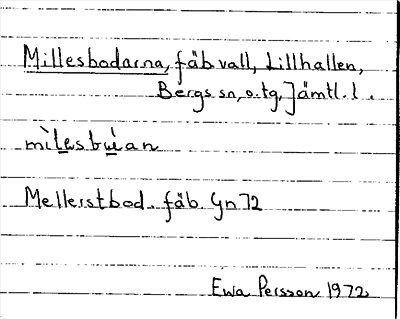 Millesbodarna, fäbvall, Lillhallen,
Bergs sn, o. tg, Jämtl. l.
mìlesbúan
Mellerstbod. fäb. Gn 72
Ewa Persson 1972